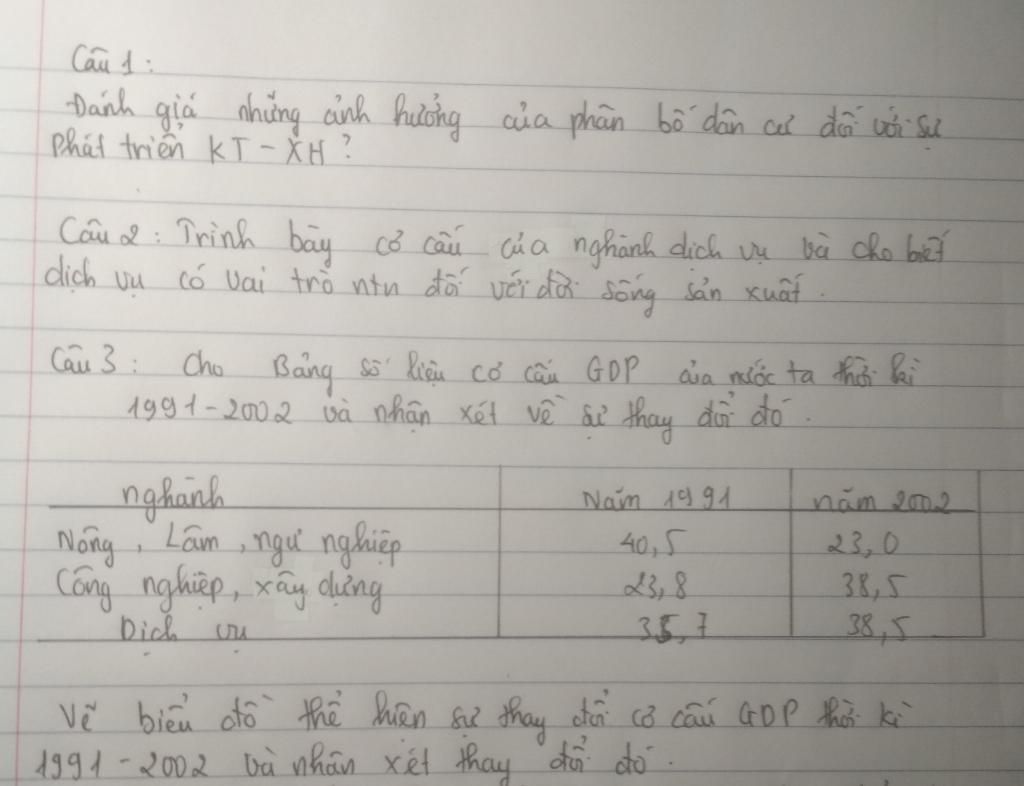 Câu 1:
Đánh giá những ảnh hưởng của phân bố dân cư đối với sự
Phát triển KT - XH?
Câu 2: Trình bày cơ cấu của nghành dịch vụ và cho biết
dịch vụ có vai trò ntn đối với đời sống sản xuất.
Câu 3: Cho Bảng số liệu cơ cấu GDP của nước ta thời kì
1991-2002 và nhận xét về sự thay đổi đó.
nghành Năm 1991 năm 2002
Nông, Lâm, ngư nghiệp 40,5 23,0
Công nghiệp, xây dựng 23,8 38,5
Dịch vụ 35,7 38,5
Vẽ biểu đồ thể hiện sự thay đổi cơ cấu GDP thời kì
1991-2002 và nhân xét thay đổi đó.